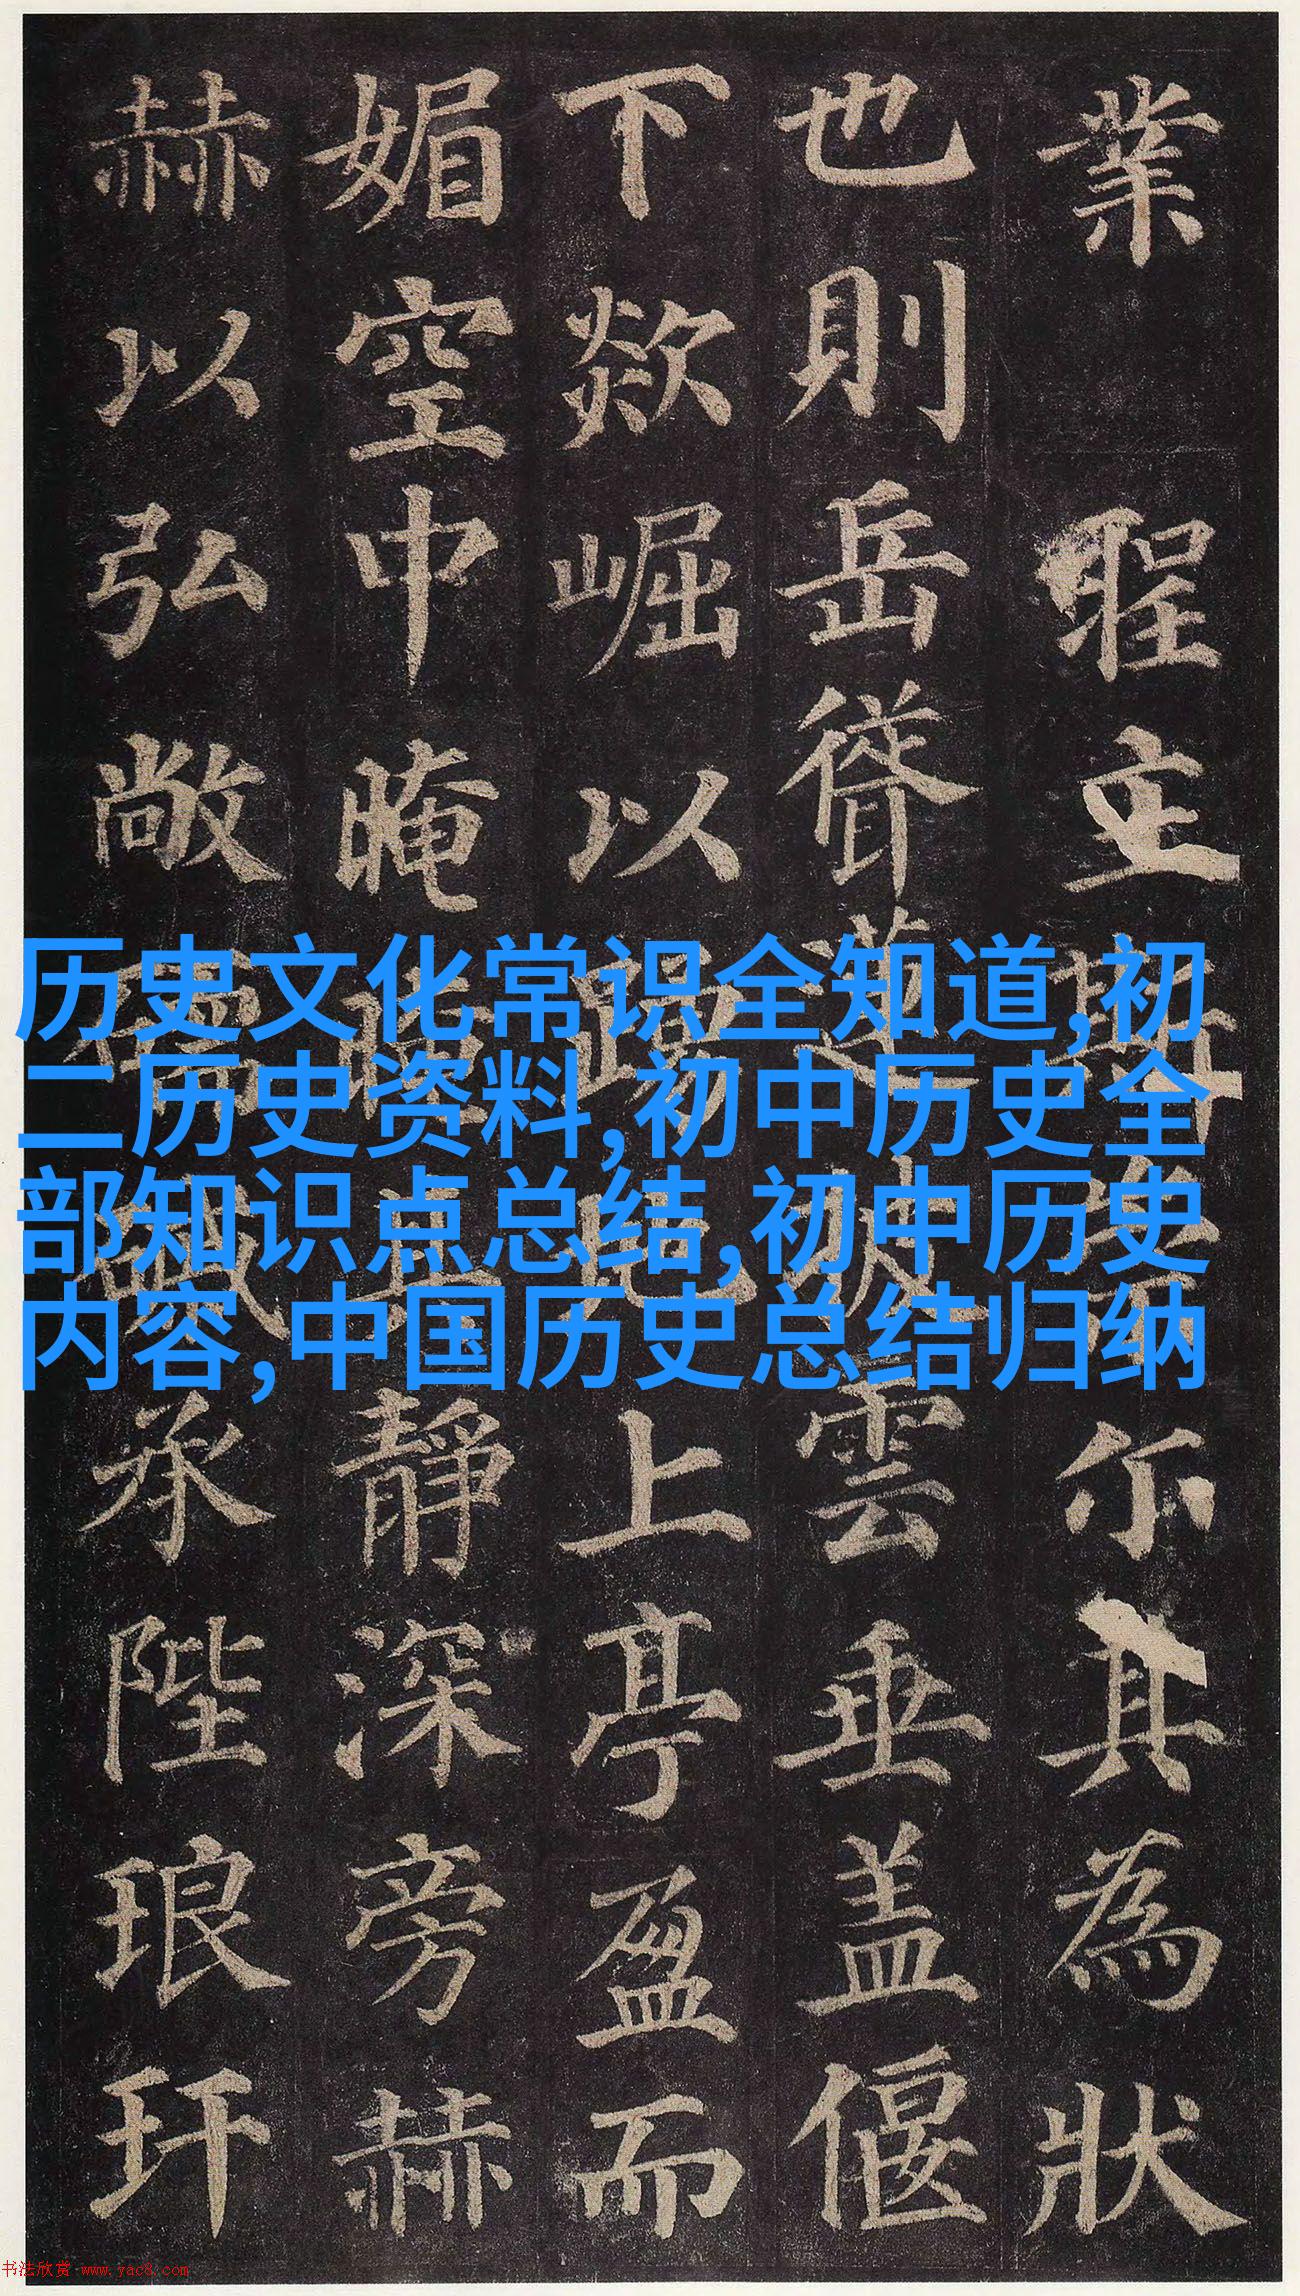 業 立斯 尓其為狀
也則岳聳蓮披雲垂盖偃
下欻崛以踊地上亭盈而
媚空中晻晻其靜深旁赫
赫以弘敞 承陛琅玕
历史文化常识全知道,初
二历史资料,初中历史全
部知识点总结,初中历史
内容,中国历史总结归纳
书法欣赏 www.yac8.com